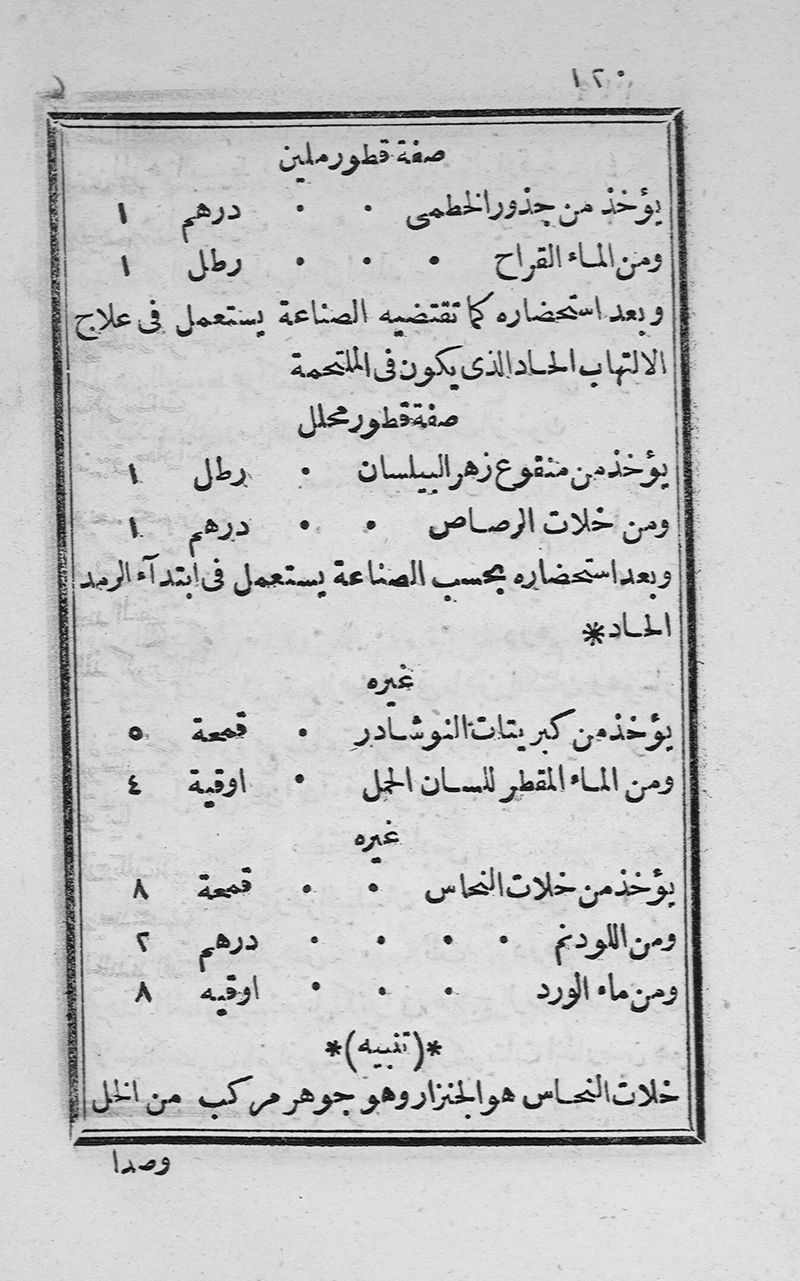 ١٢٠
صفة قطور ملين
يؤخذ من جذور الخطمى • • درهم ١
ومن الماء القراح • • • رطل ١
وبعد استحضاره كما تقتضيه الصناعة يستعمل فى علاج
الالتهاب الحاد الذى يكون فى الملتحمة
صفة قطور محلل
يؤخذ من منقوع زهر البيلسان • رطل ١
ومن خلات الرصاص • • درهم ١
وبعد استحضاره بحسب الصناعة يستعمل فى ابتدآء الرمد
الحاد*
غيره
يؤخذ من كبريتات النوشادر • قمحة ٥
ومن الماء المقطر للسان الحمل • اوقية ٤
غيره
يؤخذ من خلات النحاس • • قمحة ٨
ومن اللودنم • • • • درهم ٢
ومن ماء الورد • • • اوقيه ٨
*(تنبيه)*
خلات النحاس هو الجنزار وهو جوهر مركب من الخل
وصدا